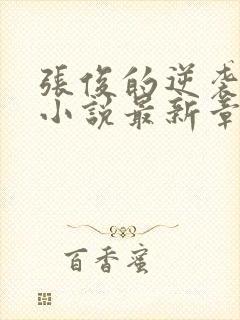 張俊的逆袭
小説最新章
百香蜜